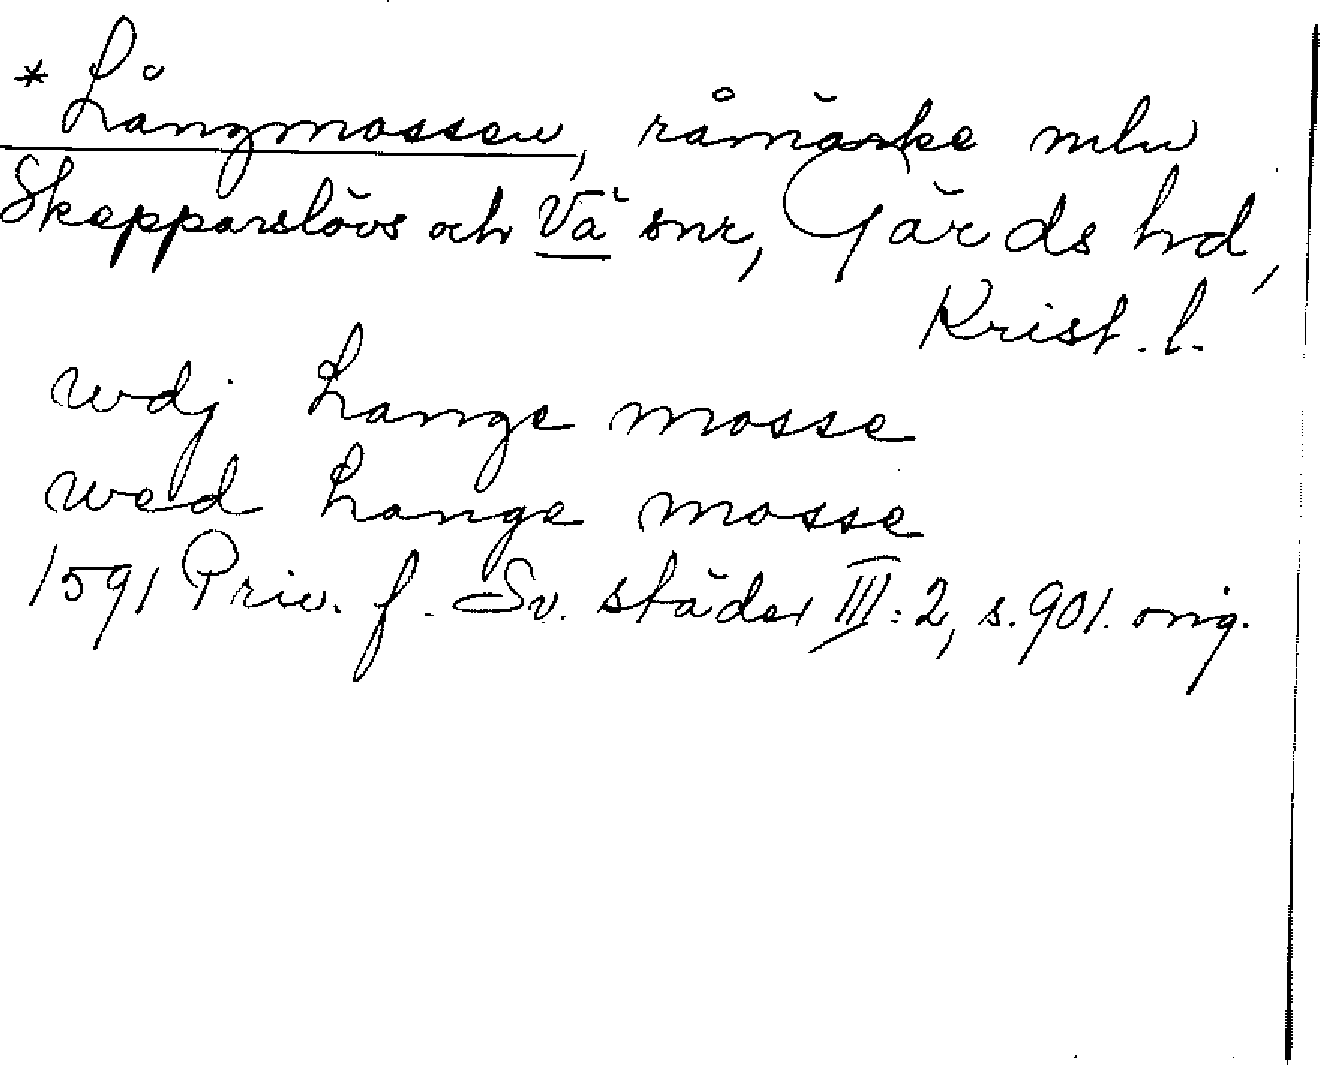 * Långmossen, råmärke mln
Skepparslövs och Vä snr, Gärds hd,
Krist. l.
wdj Lange mosse
wed Lange mosse
1591 Priv. f. Sv. städer III:2, s. 901. orig.